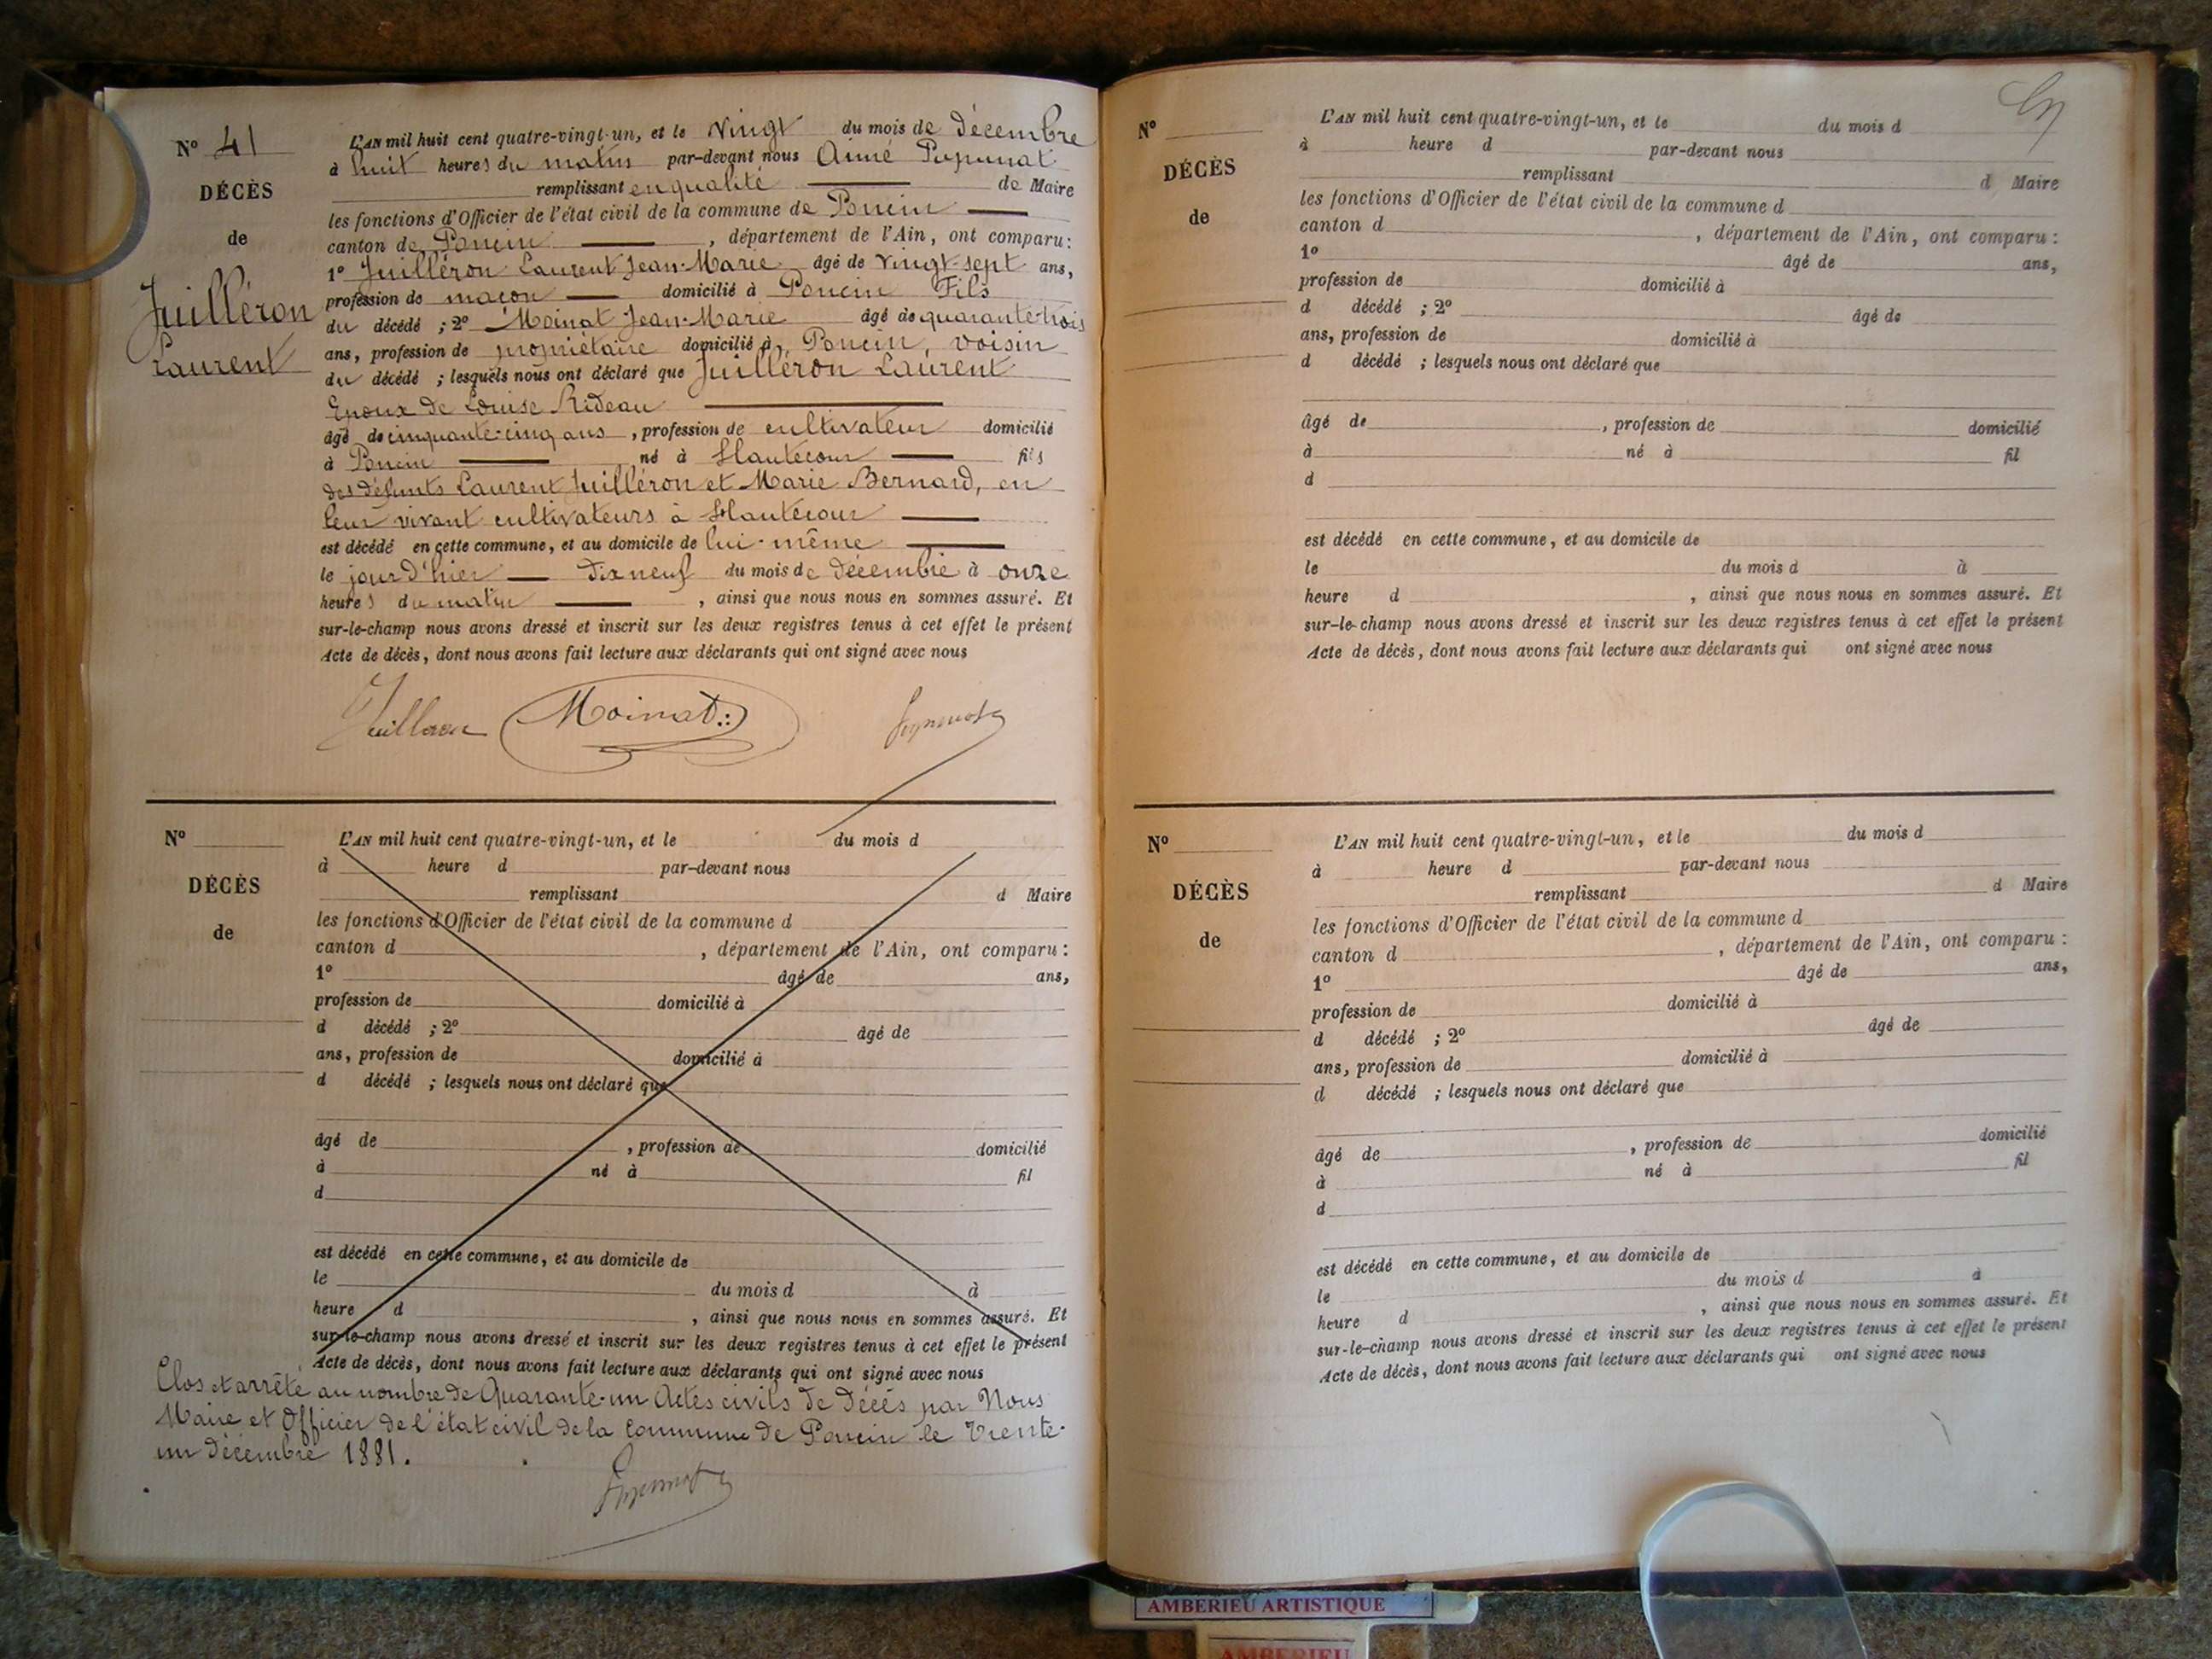 Nº 41
DÉCÈS
de
Juilléron
Laurent
L'AN mil huit cent quatre-vingt-un, et le vingt du mois de décembre
à huit heures du matin par-devant nous Aimé
remplissant en qualité de Maire
les fonctions d'Officier de l'état civil de la commune de Poncin
canton de Poncin, département de l'Ain, ont comparu :
1º Juilléron Laurent Jean-Marie âgé de vingt-sept ans,
profession de maçon domicilié à Poncin Fils
du décédé ; 2º Moinat Jean-Marie âgé de quarante-trois
ans, profession de propriétaire domicilié à Poncin, voisin
du décédé ; lesquels nous ont déclaré que Juilléron Laurent
Epoux de Louise Rideau
âgé de cinquante-cinq ans, profession de cultivateur domicilié
à Poncin né à Hautecour fils
des défunts Laurent Juilléron et Marie Bernard, en
leur vivant cultivateurs à Hautecour
est décédé en cette commune, et au domicile de lui-même
le jour d'hier dix neuf du mois de décembre à onze
heures du matin, ainsi que nous nous en sommes assuré. Et
sur-le-champ nous avons dressé et inscrit sur les deux registres tenus à cet effet le présent
Acte de décès, dont nous avons fait lecture aux déclarants qui ont signé avec nous
Juilleron Moinat
Nº
DÉCÈS
de
L'AN mil huit cent quatre-vingt-un, et le du mois d
à heure d par-devant nous
remplissant d Maire
les fonctions d'Officier de l'état civil de la commune d
canton d , département de l'Ain, ont comparu :
1º âgé de ans,
profession de domicilié à
d décédé ; 2º âgé de
ans, profession de domicilié à
d décédé ; lesquels nous ont déclaré que
âgé de , profession de domicilié
à né à fil
d
est décédé en cette commune, et au domicile de
le du mois d à
heure d , ainsi que nous nous en sommes assuré. Et
sur-le-champ nous avons dressé et inscrit sur les deux registres tenus à cet effet le présent
Acte de décès, dont nous avons fait lecture aux déclarants qui ont signé avec nous
Clos et arrêté au nombre de Quarante-un Actes civils de décès par Nous
Maire et Officier de l'état civil de la Commune de Poncin le Trente-
un décembre 1881.
Nº
DÉCÈS
de
L'AN mil huit cent quatre-vingt-un, et le du mois d
à heure d par-devant nous
remplissant d Maire
les fonctions d'Officier de l'état civil de la commune d
canton d , département de l'Ain, ont comparu :
1º âgé de ans,
profession de domicilié à
d décédé ; 2º âgé de
ans, profession de domicilié à
d décédé ; lesquels nous ont déclaré que
âgé de , profession de domicilié
à né à fil
d
est décédé en cette commune, et au domicile de
le du mois d à
heure d , ainsi que nous nous en sommes assuré. Et
sur-le-champ nous avons dressé et inscrit sur les deux registres tenus à cet effet le présent
Acte de décès, dont nous avons fait lecture aux déclarants qui ont signé avec nous
Nº
DÉCÈS
de
L'AN mil huit cent quatre-vingt-un, et le du mois d
à heure d par-devant nous
remplissant d Maire
les fonctions d'Officier de l'état civil de la commune d
canton d , département de l'Ain, ont comparu :
1º âgé de ans,
profession de domicilié à
d décédé ; 2º âgé de
ans, profession de domicilié à
d décédé ; lesquels nous ont déclaré que
âgé de , profession de domicilié
à né à fil
d
est décédé en cette commune, et au domicile de
le du mois d à
heure d , ainsi que nous nous en sommes assuré. Et
sur-le-champ nous avons dressé et inscrit sur les deux registres tenus à cet effet le présent
Acte de décès, dont nous avons fait lecture aux déclarants qui ont signé avec nous
AMBERIEU ARTISTIQUE
AMBERIEU